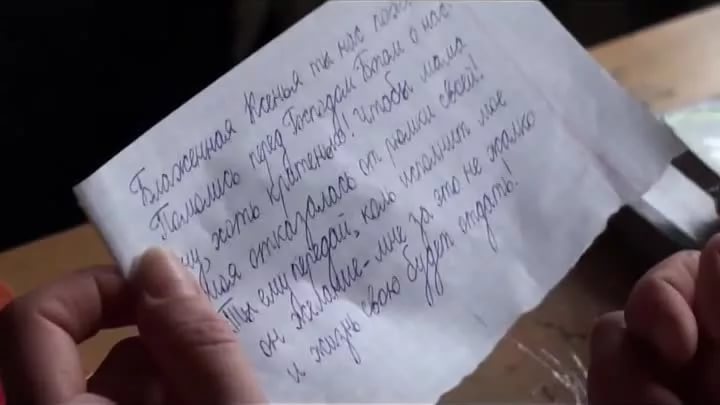 Блаженная Ксенья ты нас
Памались перед Господам Богам о нас
хоть кратенько! Чтобы мама
отказалась от рюмки своей!
Ты ему передай, коль исполнит мое
он желание - мне за это не жалко
и жизнь свою будет отдать!